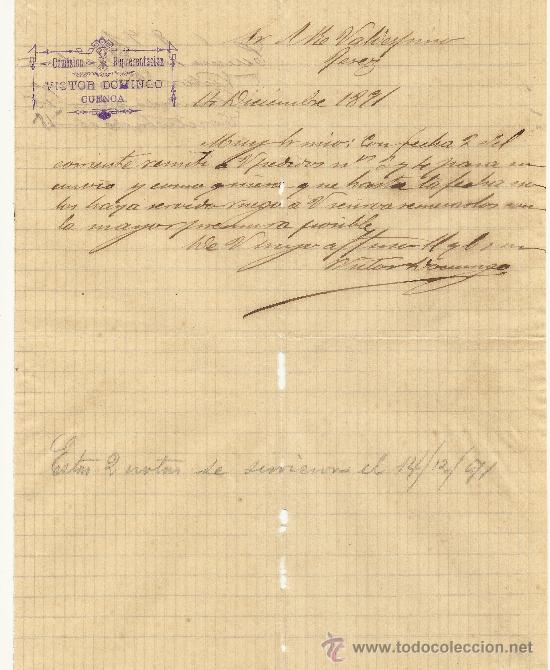 Comision Representacion
VICTOR DOMINGO
CUENCA
Sr A R Valdespino
Jerez
14 Diciembre 1891
Muy Sr mio: Con fecha 2 del
corriente remiti a V pedidos nos 3 y 4 para su
envio y como quiera que hasta la fecha no
los haya servido ruego a V se sirva remesarlos con
la mayor premura posible
De V muy affmo
Victor Domingo
Estas 2 notas se sirvieron el 12/12/91
www.todocoleccion.net